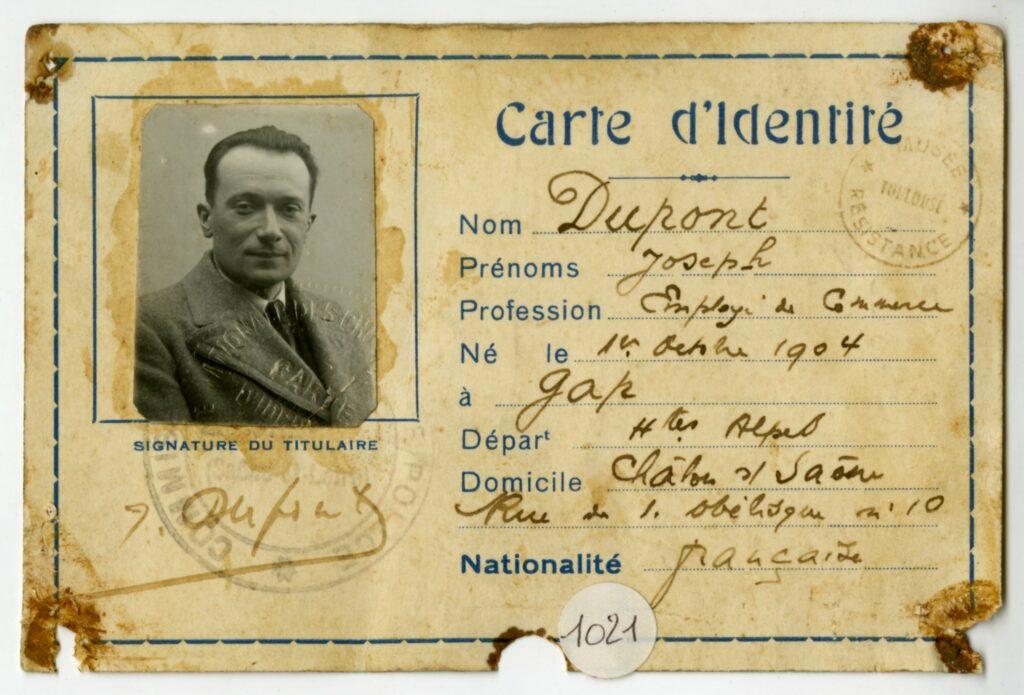 Carte d'Identité
MUSÉE
TOULOUSE
RÉSISTANCE
Nom Dupont
Prénoms Joseph
Profession Employé de Commerce
Né le 1er Octobre 1904
à Gap
Départ Htes Alpes
Domicile Châlon s/ Saône
Rue de l'obélisque n° 10
Nationalité française
SIGNATURE DU TITULAIRE
J. Dupont
COMMI
POLICE
1021